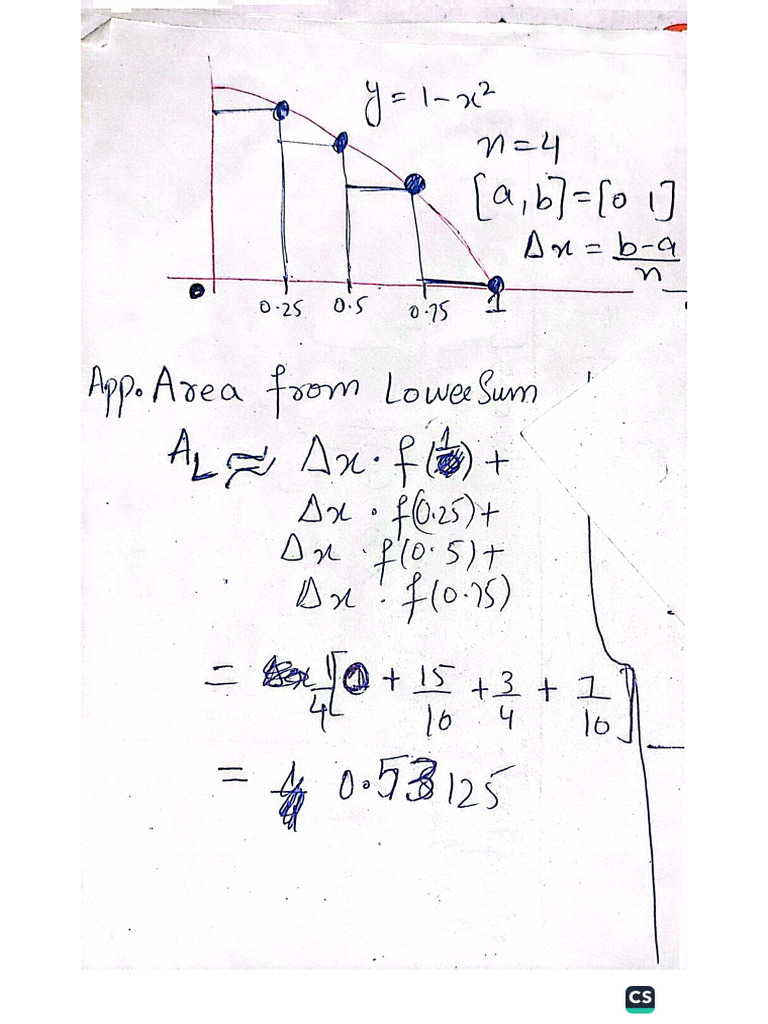 y = 1-x²
n=4
[a,b]=[0 1]
Δx = b-a/n
0.25 0.5 0.75 1
App. Area from Lower Sum
A_L ≈ Δx · f(1) +
Δx · f(0.25)+
Δx · f(0.5)+
Δx · f(0.75)
= 1/4[0 + 15/16 + 3/4 + 7/16]
= 0.53125
CS